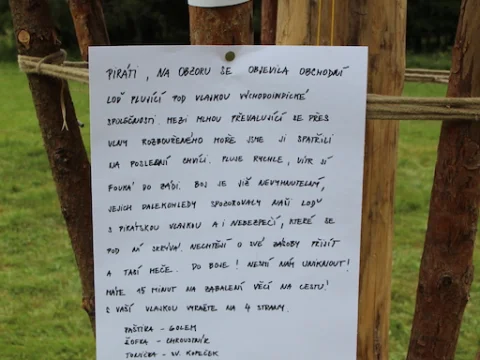 PIRÁTI, NA OBZORU SE OBJEVILA OBCHODNÍ
LOĎ PLUJÍCÍ POD VLAJKOU VÝCHODOINDICKÉ
SPOLEČNOSTI. MEZI MLHOU PŘEVALUJÍCÍ SE PŘES
VLNY ROZBOUŘENÉHO MOŘE JSME JI SPATŘILI
NA POSLEDNÍ CHVÍLI. PLUJE RYCHLE, VÍTR JÍ
FOUKÁ DO ZÁDI. BOJ JE JIŽ NEVYHNUTELNÝ,
JEJICH DALEKOHLEDY SPOZOROVALY NAŠI LOĎ
S PIRÁTSKOU VLAJKOU A I NEBEZPEČÍ, KTERÉ SE
POD NÍ SKRÝVÁ. NECHTĚJÍ O SVÉ ZÁSOBY PŘIJÍT
A TASÍ MEČE. DO BOJE! NESMÍ NÁM UNIKNOUT!
MÁTE 15 MINUT NA ZABALENÍ VĚCÍ NA CESTU!
S VAŠÍ VLAJKOU VYRAZTE NA 4 STRANY.
PAŠTIKA - GOLEM
ŽOFKA - CHROUSTNÍK
TONIČKA - SV. KOPEČEK